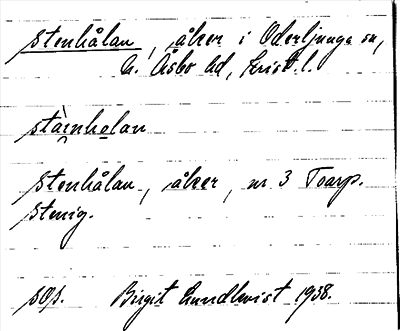 Stenhålan, åker i Oderljunga sn,
N. Åsbo hd, Krist. l.
stàinholan
Stenhålan, åker, nr 3 Toarp.
Stenig.
sOp. Birgit Lundkvist 1938.